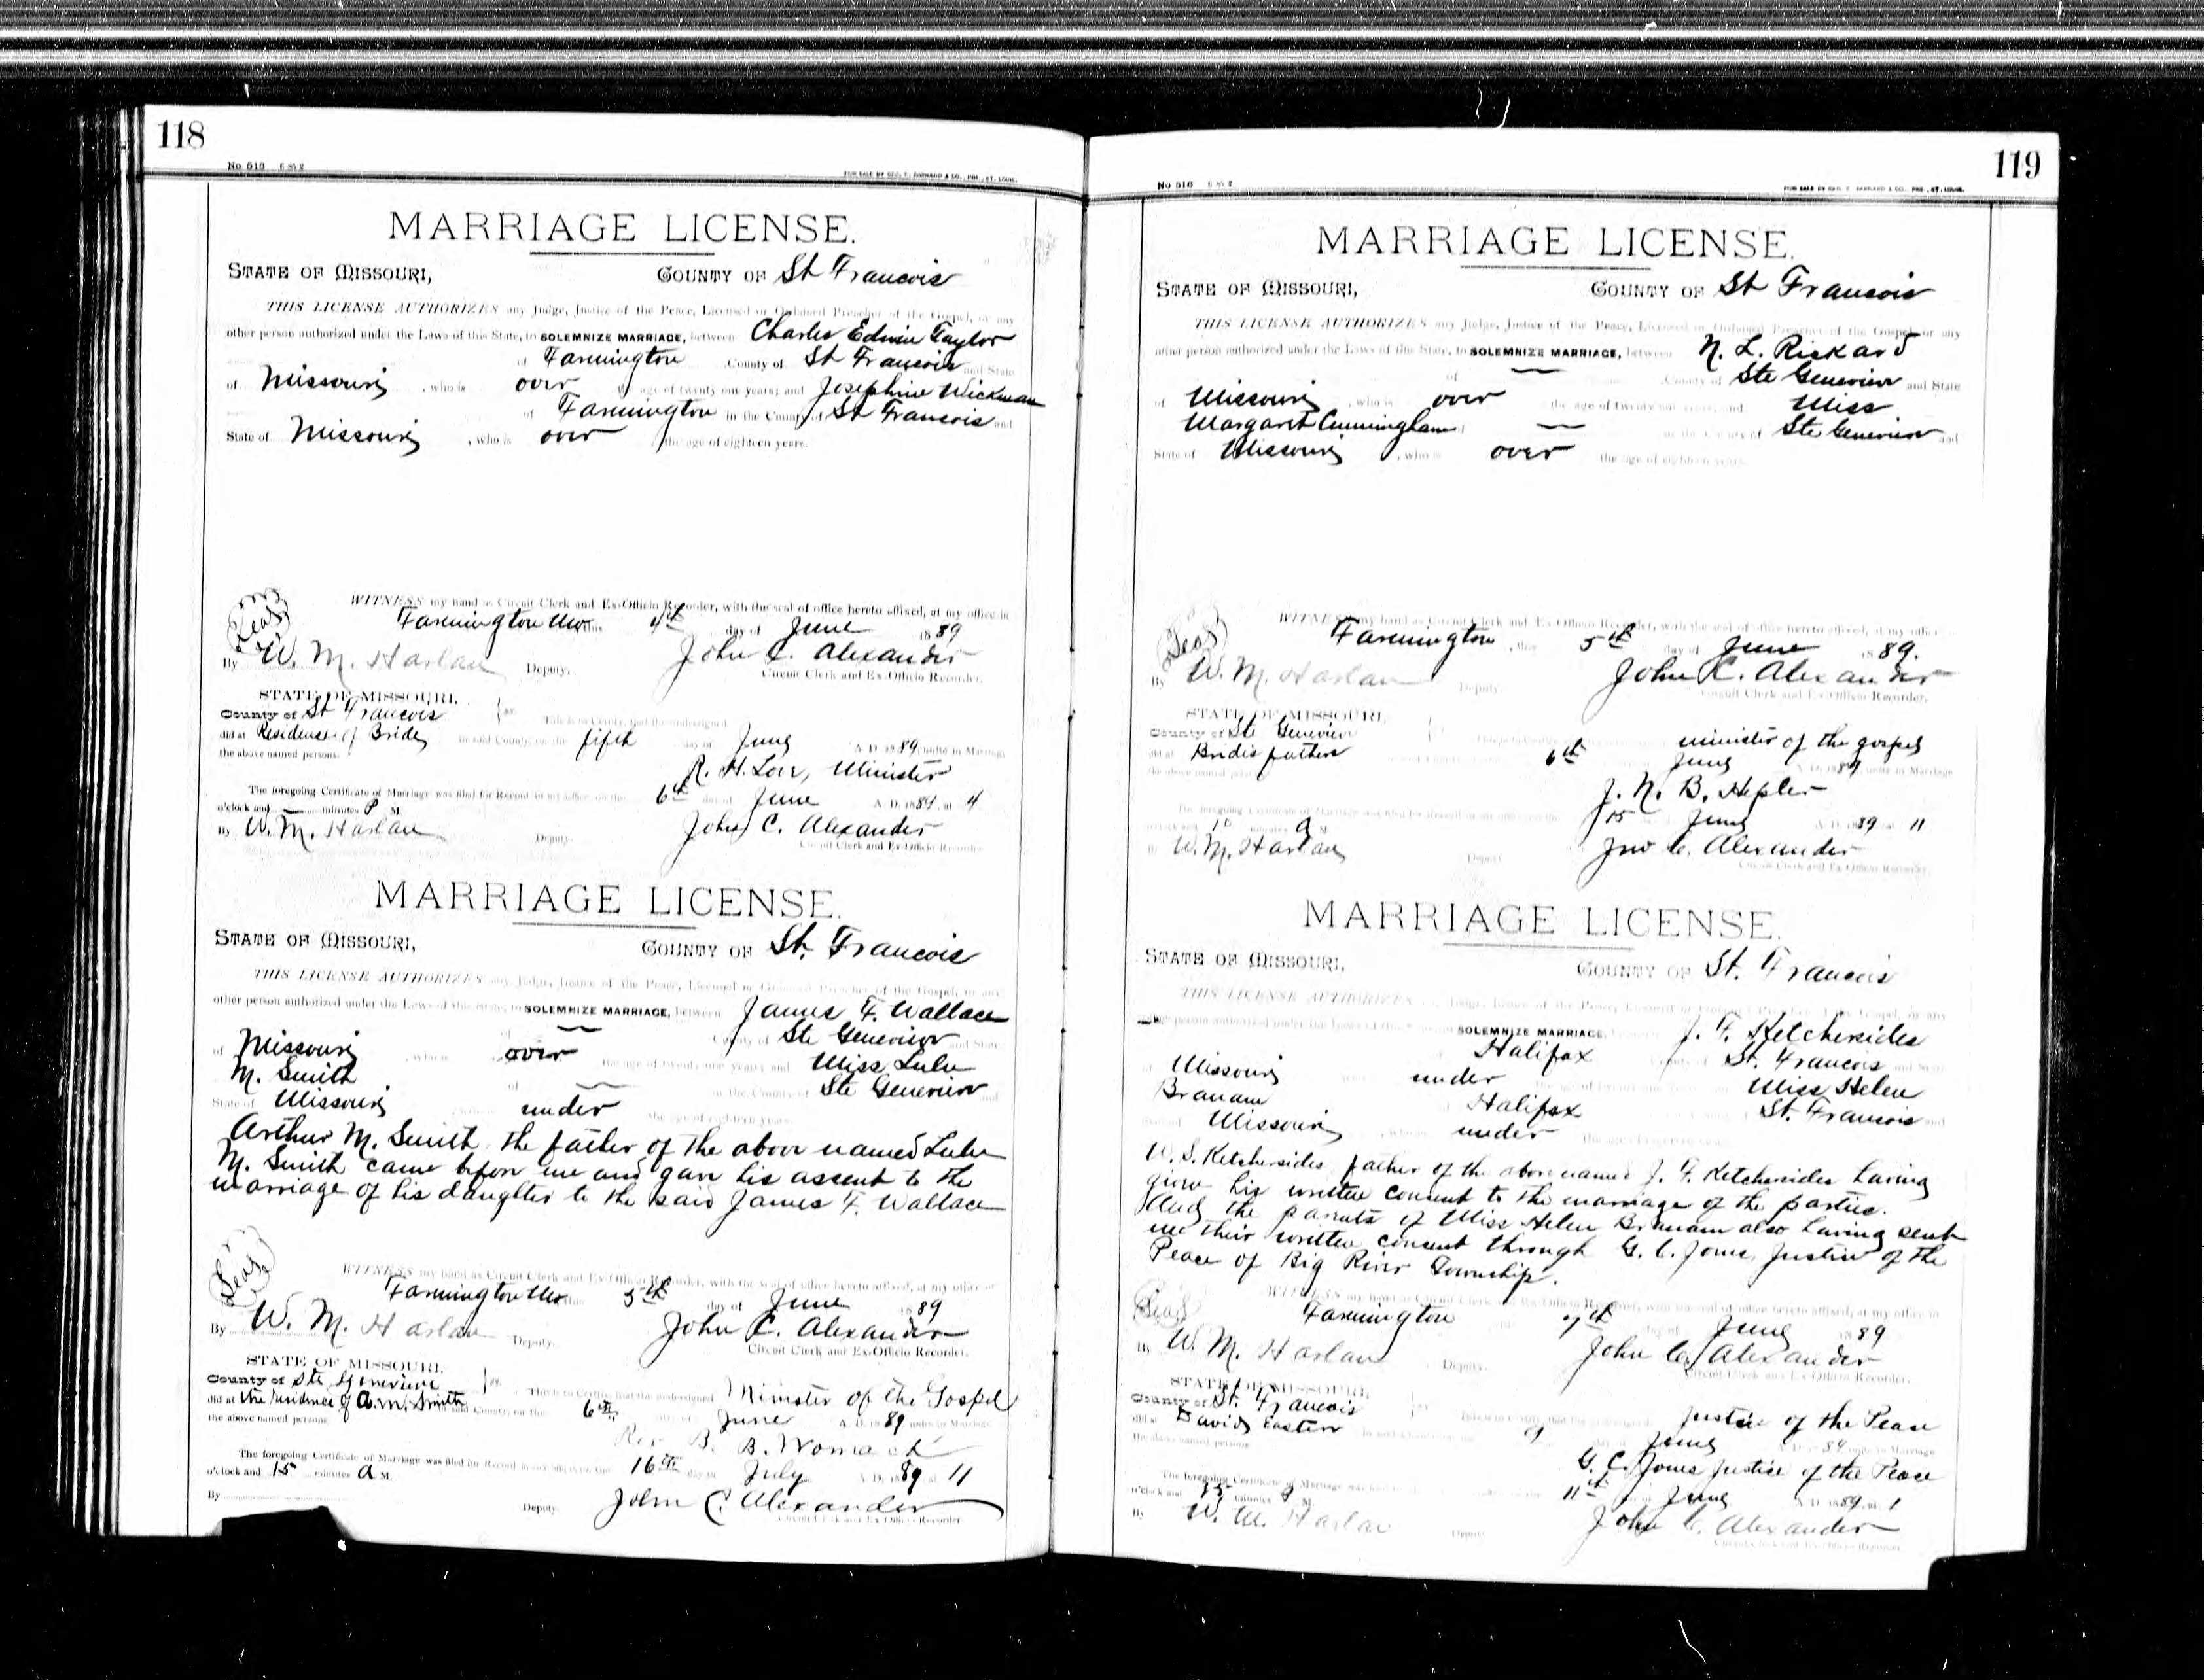 118
No 510
FOR SALE BY GEO. D. BARNARD & CO., PRS., ST. LOUIS.
MARRIAGE LICENSE.
STATE OF MISSOURI, COUNTY OF St Francois
THIS LICENSE AUTHORIZES any Judge, Justice of the Peace, Licensed or Ordained Preacher of the Gospel, or any
other person authorized under the Laws of this State, to SOLEMNIZE MARRIAGE, between Charles Edwin Taylor
of Farmington County of St Francois and State
of Missouri, who is over the age of twenty one years; and Josephine Wickman
of Farmington in the County of St Francois and
State of Missouri, who is over the age of eighteen years.
WITNESS my hand as Circuit Clerk and Ex-Officio Recorder, with the seal of office hereto affixed, at my office in
(Seal) Farmington Mo this 4th day of June 1889
By W. M. Harlan Deputy. John C. Alexander
Circuit Clerk and Ex-Officio Recorder.
STATE OF MISSOURI,
County of St Francois ss. This is to Certify, that the undersigned
did at Residence of Bride in said County, on the fifth day of June A. D. 1889, unite in Marriage
the above named persons. R. H. Minister
The foregoing Certificate of Marriage was filed for Record in my office on the 6th day of June A. D. 1889, at 4
o'clock and — minutes P M.
By W. M. Harlan Deputy. John C. Alexander
Circuit Clerk and Ex-Officio Recorder
MARRIAGE LICENSE.
STATE OF MISSOURI, COUNTY OF St. Francois
THIS LICENSE AUTHORIZES any Judge, Justice of the Peace, Licensed or Ordained Preacher of the Gospel, or any
other person authorized under the Laws of this State, to SOLEMNIZE MARRIAGE, between James F. Wallace
of — County of Ste Genevieve and State
of Missouri, who is over the age of twenty one years; and Miss Lulu
M. Smith of — in the County of Ste Genevieve and
State of Missouri under the age of eighteen years.
Arthur M. Smith the father of the above named Lulu
M. Smith came before me and gave his assent to the
marriage of his daughter to the said James F. Wallace
WITNESS my hand as Circuit Clerk and Ex-Officio Recorder, with the seal of office hereto affixed, at my office in
(Seal) Farmington Mo this 5th day of June 1889
By W. M. Harlan Deputy. John C. Alexander
Circuit Clerk and Ex-Officio Recorder.
STATE OF MISSOURI,
County of Ste Genevieve ss. This is to Certify, that the undersigned Minister of the Gospel
did at the residence of A. M. Smith in said County, on the 6th day of June A. D. 1889, unite in Marriage
the above named persons. Rev B. B. Womack
The foregoing Certificate of Marriage was filed for Record in my office on the 16th day of July A. D. 1889 at 11
o'clock and 15 minutes A M.
By Deputy. John C. Alexander
Circuit Clerk and Ex-Officio Recorder
119
No 510
FOR SALE BY GEO. D. BARNARD & CO., PRS., ST. LOUIS.
MARRIAGE LICENSE.
STATE OF MISSOURI, COUNTY OF St Francois
THIS LICENSE AUTHORIZES any Judge, Justice of the Peace, Licensed or Ordained Preacher of the Gospel, or any
other person authorized under the Laws of this State, to SOLEMNIZE MARRIAGE, between N. L. Rickard
of — County of Ste Genevieve and State
of Missouri, who is over the age of twenty one years; and Miss
Margaret Cunningham of — in the County of Ste Genevieve and
State of Missouri, who is over the age of eighteen years.
WITNESS my hand as Circuit Clerk and Ex-Officio Recorder, with the seal of office hereto affixed, at my office
(Seal) Farmington, this 5th day of June 1889.
By W. M. Harlan Deputy. John C. Alexander
Circuit Clerk and Ex-Officio Recorder.
STATE OF MISSOURI,
County of Ste Genevieve minister of the gospel
did at Brides fathers 6th June A. D. 1889 unite in Marriage
the above named persons. J. N. B. Hepler
The foregoing Certificate of Marriage was filed for Record in my office on the 15 June A. D. 1889 at 11
o'clock and 10 minutes A M
By W. M. Harlan Deputy. Jno C. Alexander
Circuit Clerk and Ex-Officio Recorder
MARRIAGE LICENSE.
STATE OF MISSOURI, COUNTY OF St. Francois
THIS LICENSE AUTHORIZES any Judge, Justice of the Peace, Licensed or Ordained Preacher of the Gospel, or any
other person authorized under the Laws of this State, to SOLEMNIZE MARRIAGE, J. F. Ketchersides
Halifax St. Francois
of Missouri under Miss Helen
Branam Halifax St. Francois and
Missouri under
W. S. Ketchersides father of the above named J. F. Ketchersides having
given his written consent to the marriage of the parties.
And the parents of Miss Helen Branam also having sent
me their written consent through G. C. Jones, Justice of the
Peace of Big River Township.
WITNESS my hand as Circuit Clerk and Ex-Officio Recorder, with the seal of office hereto affixed, at my office in
(Seal) Farmington 7th day of June 1889
By W. M. Harlan Deputy. John C. Alexander
Circuit Clerk and Ex-Officio Recorder.
STATE OF MISSOURI,
County of St. Francois Justice of the Peace
did at David Easters 9 June A. D. 1889 unite in Marriage
the above named persons. G. C. Jones Justice of the Peace
The foregoing Certificate of Marriage was 11th June A. D. 1889 at 1
o'clock and 15 minutes P M.
By W. M. Harlan Deputy. John C. Alexander
Circuit Clerk and Ex-Officio Recorder